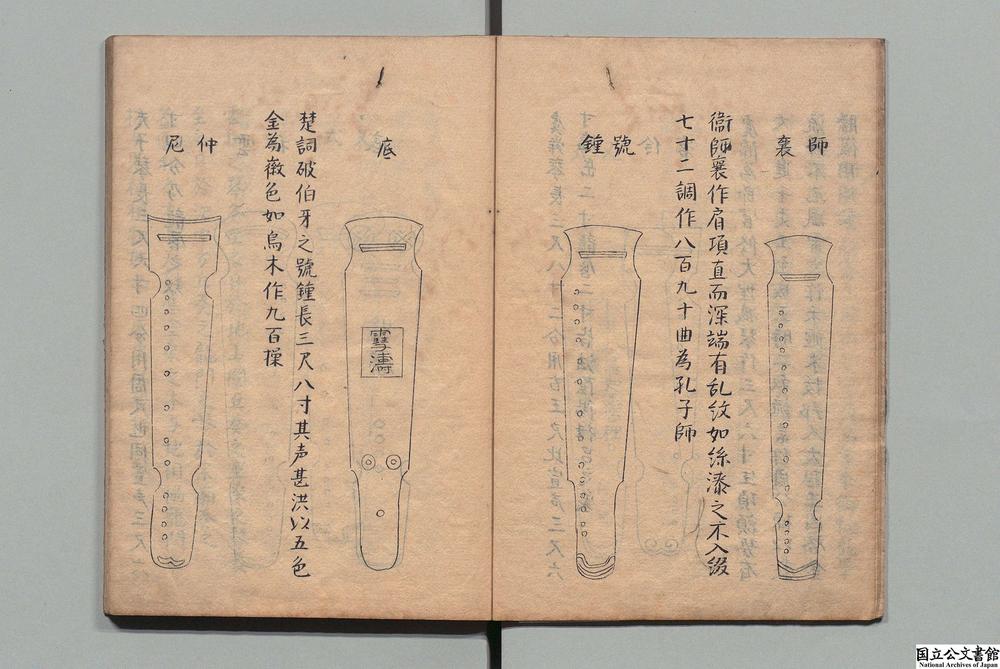 師襄
衞師襄作肩項直而深端有乱紋如絲漆之不入綴
七十二調作八百九十曲為孔子師
號鍾
底
雪濤
楚詞破伯牙之號鍾長三尺八寸其声甚洪以五色
金為徽色如烏木作九百操
仲尼
国立公文書館
National Archives of Japan